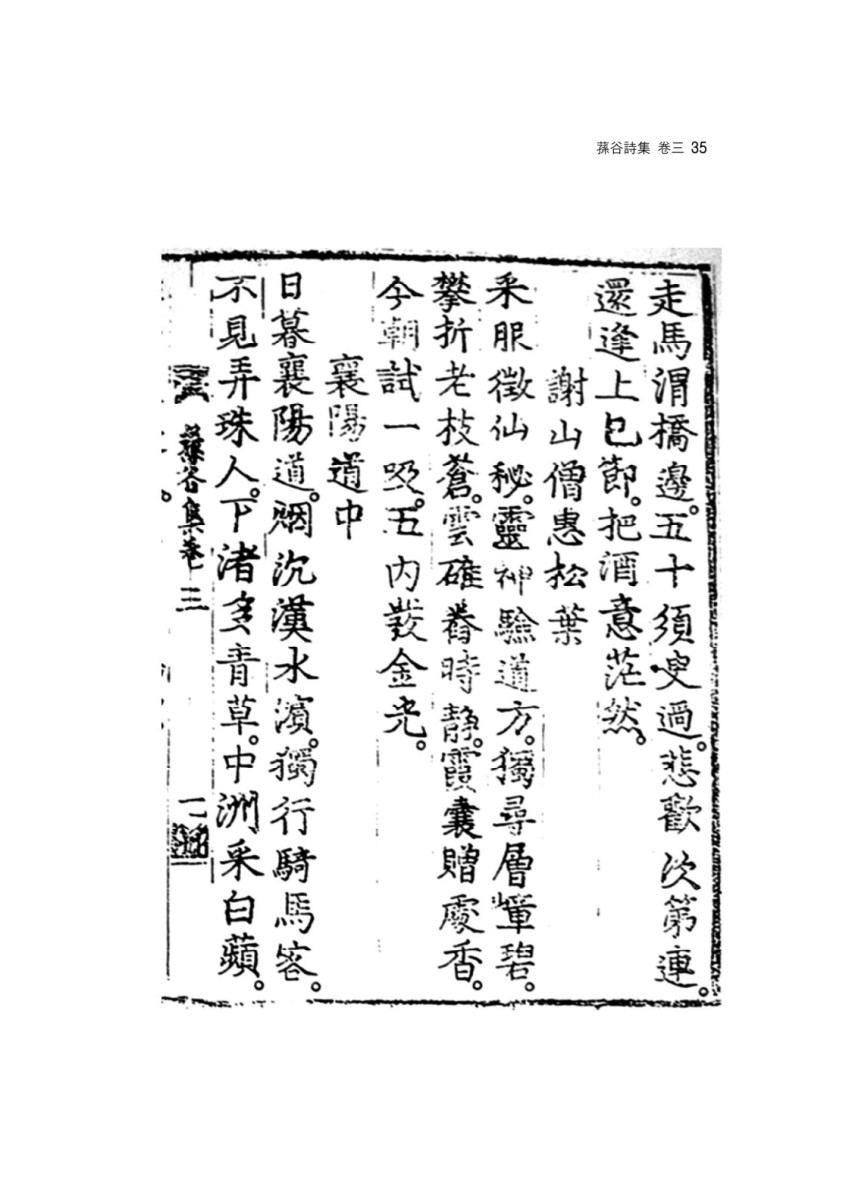 蓀谷詩集 卷三 35
走馬渭橋邊。五十須臾過。悲歡次第連。
還逢上巳節。把酒意茫然。
謝山僧惠松葉
采服徵仙秘。靈神驗道方。獨尋層嶂碧。
攀折老枝蒼。雲碓舂時靜。霞囊贈處香。
今朝試一吸。五內散金光。
襄陽道中
日暮襄陽道。烟沉漢水濱。獨行騎馬客。
不見弄珠人。下渚多青草。中洲采白蘋。
蓀谷集卷三